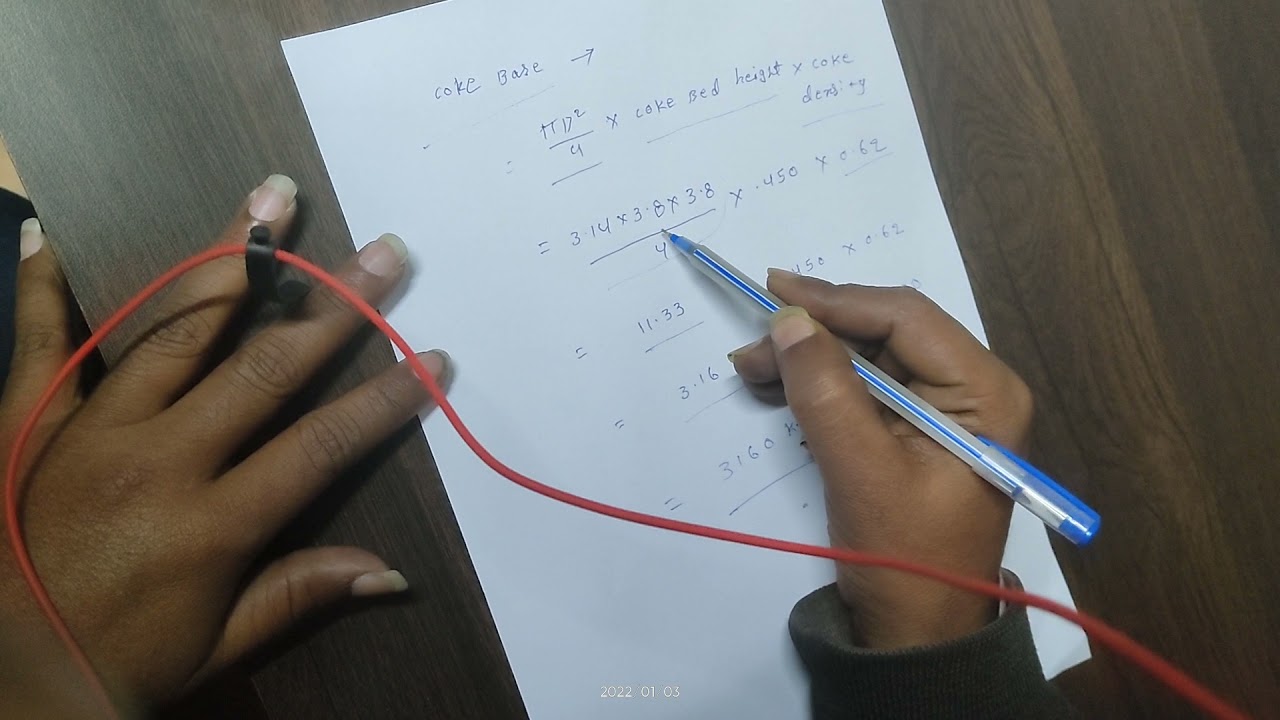 coke Base →
= πD²/4 × coke Bed height × coke
density
= 3.14 × 3.8 × 3.8 / 4 × .450 × 0.62
= 11.33 .450 × 0.62
= 3.16
= 3160
2022 01 03